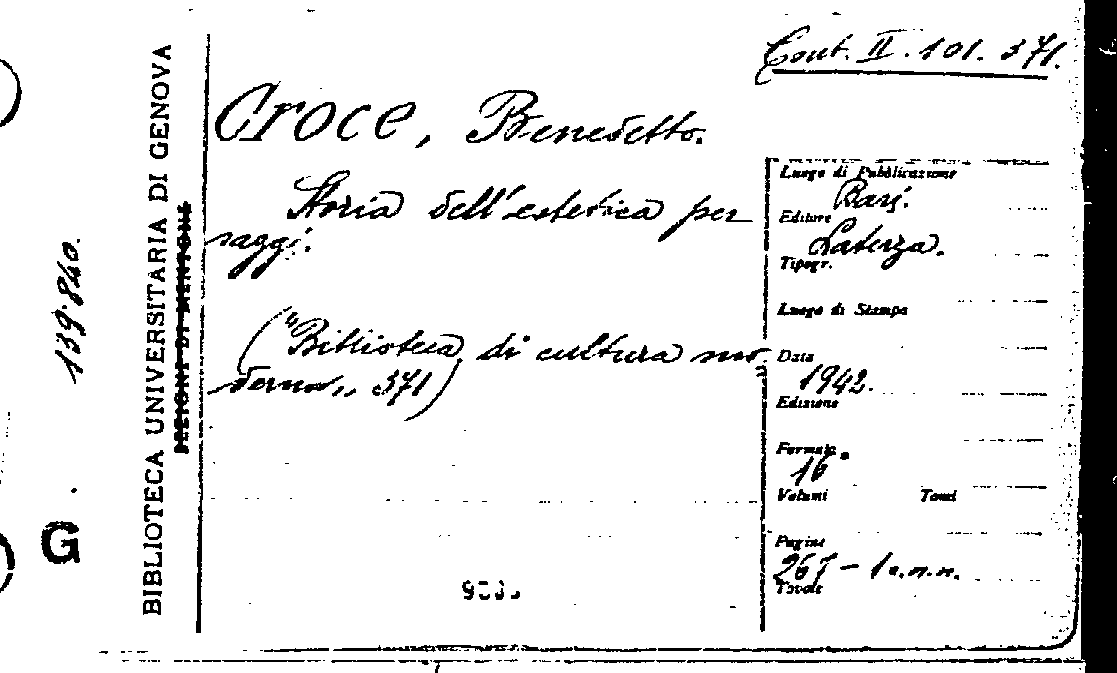 Cont. II. 101. 371.
Croce, Benedetto.
Storia dell'estetica per
saggi.
("Biblioteca di cultura mo-
derna,, 371)
Luogo di Pubblicazione
Bari.
Editore
Laterza.
Tipogr.
Luogo di Stampa
Data
1942.
Edizione
Formato
16°
Volumi Tomi
Pagine
267 - 1 c.n.n.
Tavole
BIBLIOTECA UNIVERSITARIA DI GENOVA
139.840.
G